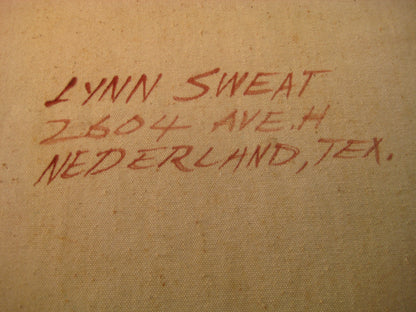 LYNN SWEAT
2604 AVE. H
NEDERLAND, TEX.